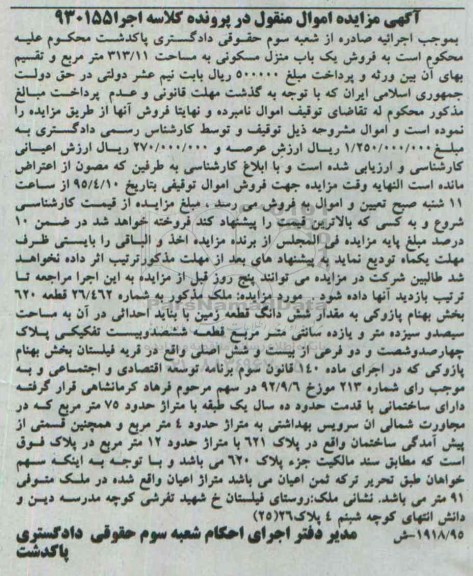 آگهی مزایده اموال منقول در پرونده کلاسه اجرا۹۳۰۱۵۵
بموجب اجرائیه صادره از شعبه سوم حقوقی دادگستری پاکدشت محکوم علیه
محکوم است به فروش یک باب منزل مسکونی به مساحت ۳۱۳/۱۱ متر مربع و تقسیم
بهای آن بین ورثه و پرداخت مبلغ ۵۰۰۰۰۰ ریال بابت نیم عشر دولتی در حق دولت
جمهوری اسلامی ایران که با توجه به گذشت مهلت قانونی و عدم پرداخت مبالغ
مذکور محکوم له تقاضای توقیف اموال نامبرده و نهایتا فروش آنها از طریق مزایده را
نموده است و اموال مشروحه ذیل توقیف و توسط کارشناس رسمی دادگستری به
مبلغ ۱/۲۵۰/۰۰۰/۰۰۰ ریال ارزش عرصه و ۲۷۰/۰۰۰/۰۰۰ ریال ارزش اعیانی
کارشناسی و ارزیابی شده است و با ابلاغ کارشناسی به طرفین که مصون از اعتراض
مانده است النهایه وقت مزایده جهت فروش اموال توقیفی بتاریخ ۹۵/۴/۱۰ از ساعت
۱۱ شنبه صبح تعیین و اموال به فروش می رسد ، مبلغ مزایده از قیمت کارشناسی
شروع و به کسی که بالاترین قیمت را پیشنهاد کند فروخته خواهد شد در ضمن ۱۰
درصد مبلغ پایه مزایده فی المجلس از برنده مزایده اخذ و الباقی را بایستی ظرف
مهلت یکماه تودیع نماید و پیشنهاد های بعد از مهلت مذکورترتیب اثر داده نخواهد
شد طالبین شرکت در مزایده می توانند پنج روز قبل از مزایده به این اجرا مراجعه تا
ترتیب بازدید آنها داده شود . مورد مزایده: ملک مذکور به شماره ۲۶/۴۶۲ قطعه ۶۲۰
بخش بهنام پازوکی به مقدار شش دانگ قطعه زمین با بناید احداثی در آن به مساحت
سیصدو سیزده متر و یازده سانتی متر مربع قطعه ششصدوبیست تفکیکی پلاک
چهارصدوشصت و دو فرعی از بیست و شش اصلی واقع در قریه فیلستان بخش بهنام
پازوکی که در اجرای ماده ۱۴۰ قانون سوم برنامه توسعه اقتصادی و اجتماعی و به
موجب رای شماره ۲۱۳ مورخ ۹۲/۹/۶ در سهم مرحوم فرهاد کرمانشاهی قرار گرفته
دارای ساختمانی با قدمت حدود ده سال یک طبقه با متراژ حدود ۷۵ متر مربع که در
مجاورت شمالی ان سرویس بهداشتی به متراژ حدود ۴ متر مربع و همچنین قسمتی از
پیش آمدگی ساختمان واقع در پلاک ۶۲۱ با متراژ حدود ۱۲ متر مربع در پلاک فوق
است که مطابق سند مالکیت جزء پلاک ۶۲۰ می باشد و با توجه به اینکه سهم
خواهان طبق تحریر ترکه ثمن اعیان می باشد متراژ اعیان واقع شده در ملک متوفی
۹۱ متر می باشد. نشانی ملک:روستای فیلستان خ شهید تفرشی کوچه مدرسه دین و
دانش انتهای کوچه شبنم ۴ پلاک۲۶(۲۵)
۱۹۱۸/۹۵-ش مدیر دفتر اجرای احکام شعبه سوم حقوقی دادگستری
پاکدشت